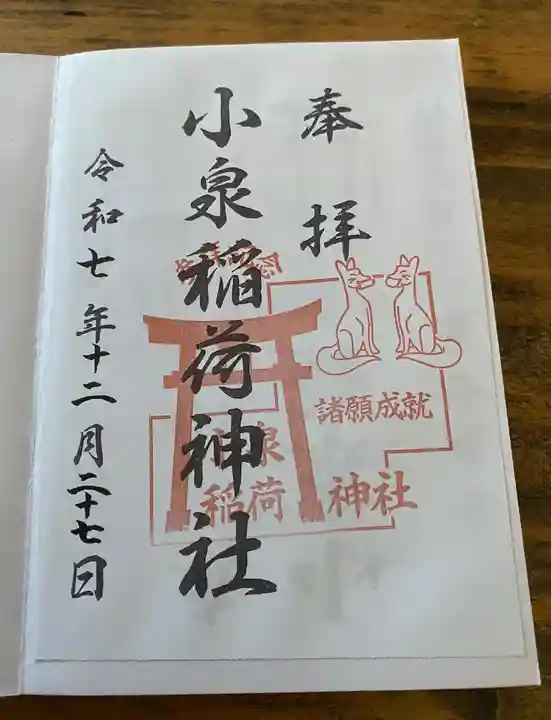 奉拝
小泉稲荷神社
令和七年十二月二十七日
諸願成就
小泉
稲荷 神社